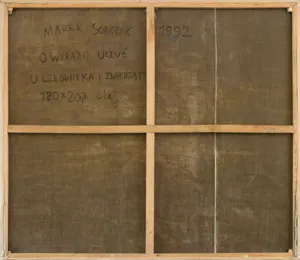 MAREK SOBCZYK 1992
O WYRAZIE UCZUĆ
U CZŁOWIEKA I ZWIERZĄT
180x207 olej